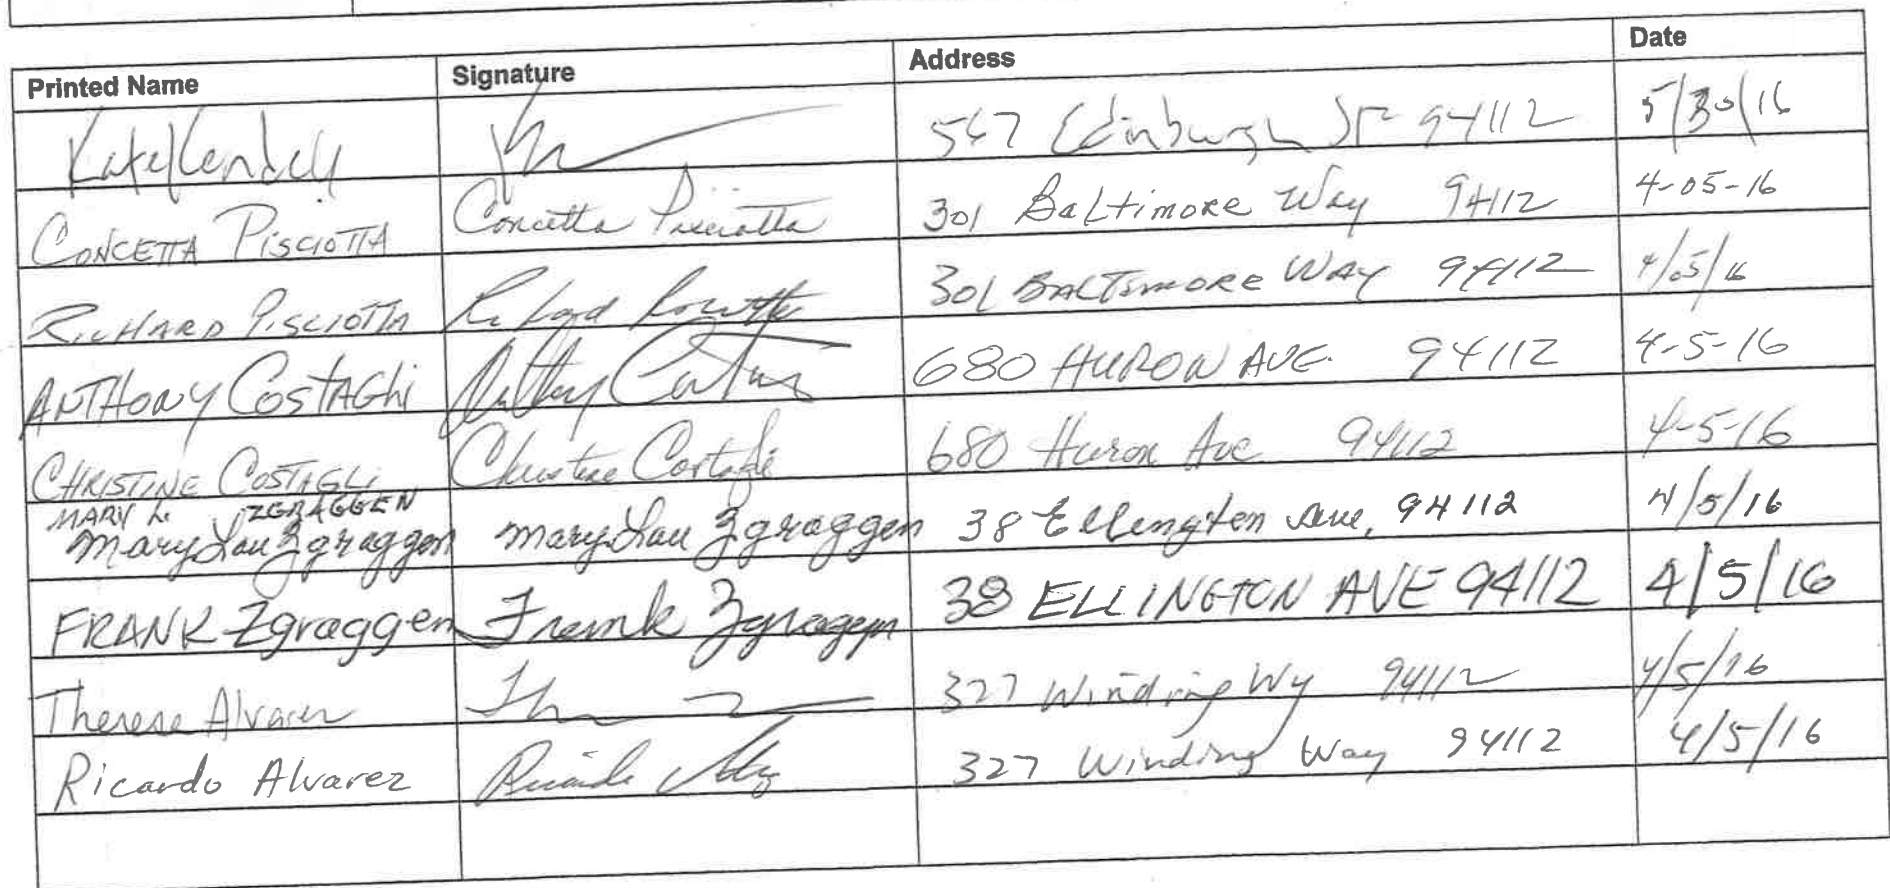 Printed Name Signature Address Date
Kate Kendell 567 Edinburgh St 94112 5/30/16
CONCETTA PISCIOTTA Concetta Pisciotta 301 Baltimore Way 94112 4-05-16
RICHARD PISCIOTTA Richard Pisciotta 301 BALTIMORE WAY 94112 4/05/16
ANTHONY COSTAGLI Anthony 680 HURON AVE. 94112 4-5-16
CHRISTINE COSTAGLI Christine Costagli 680 Huron Ave 94112 4-5-16
MARY L. ZGRAGGEN
Mary Lou Zgraggen Mary Lou Zgraggen 38 Ellington Ave, 94112 4/5/16
FRANK Zgraggen Frank Zgraggen 38 ELLINGTON AVE 94112 4/5/16
Therese Alvarez 327 Winding Wy 94112 4/5/16
Ricardo Alvarez Ricardo 327 Winding Way 94112 4/5/16